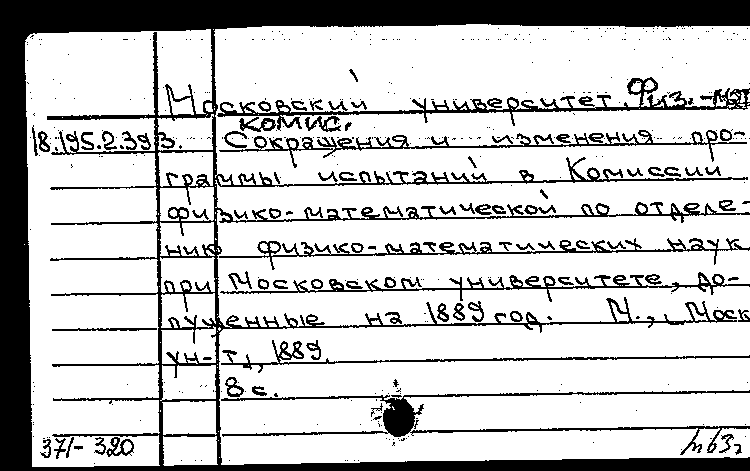 Московский университет. Физ.-мат
комис.
18.195.2.393. Сокращения и изменения про-
граммы испытаний в Комиссии
физико-математической по отделе-
нию физико-математических наук
при Московском университете, до-
пущенные на 1889 год. М., Моск
ун-т, 1889.
8 с.
371-320